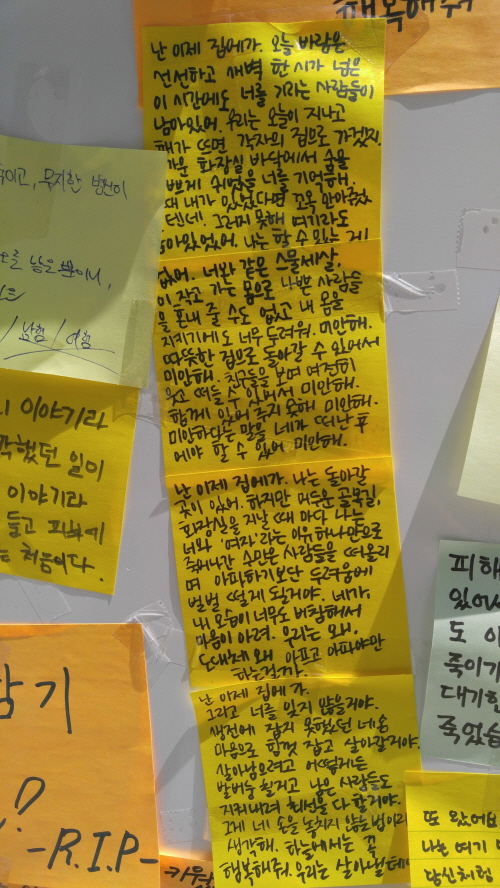 행복해줘
난 이제 집에가. 오늘 바람은
선선하고 새벽 한 시가 넘은
이 시간에도 너를 기리는 사람들이
남아있어. 우리는 오늘이 지나고
해가 뜨면 각자의 집으로 가겠지.
화장실 바닥에서 숨을
쉬었을 너를 기억해.
때 내가 있었다면 꼬옥 안아줬을
텐데. 그러지 못해 여기라도
남아있었어. 나는 할 수 있는 게
없어. 너와 같은 스물세살,
이 작고 가는 몸으로 나쁜 사람들
을 혼내 줄 수도 없고 내 몸을
지키기에도 너무 두려워. 미안해.
따뜻한 집으로 돌아갈 수 있어서
미안해. 친구들을 보며 여전히
웃고 떠들 수 있어서 미안해.
함께 있어 주지 못해 미안해.
미안하다는 말을 네가 떠난 후
에야 할 수 있어 미안해.
난 이제 집에가. 나는 돌아갈
곳이 있어. 하지만 어두운 골목길,
화장실을 지날 때 마다 나는
너와 '여자'라는 이유 하나만으로
죽어나간 수많은 사람들을 떠올리
며 아파하기보단 두려움에
벌벌 떨게 되겠지. 네가.
내 모습이 너무도 비참해서
마음이 아려. 우리는 왜.
도대체 왜 아프고 아파야만
하는걸까.
난 이제 집에 가.
그리고 너를 잊지 않을거야.
생전에 잡지 못했던 네 손
마음으로 함께 잡고 살아갈거야.
살아남으려고 어떻게든
발버둥 칠거고 남은 사람들도
지켜내려 최선을 다 할거야.
그게 네 손을 놓치지 않는 법이라
생각해. 하늘에서는 꼭
행복해줘. 우리는 살아낼테니
이고, 무지한 범인이
낳을 뿐이니,
/ 남혐 / 여혐
이야기라
각했던 일이
이야기라
들고 피부에
는 처음이다.
-R.I.P-
피해
있어
도 아
죽이기
대기한
죽었습
또 왔어요
나는 여기
당신처럼